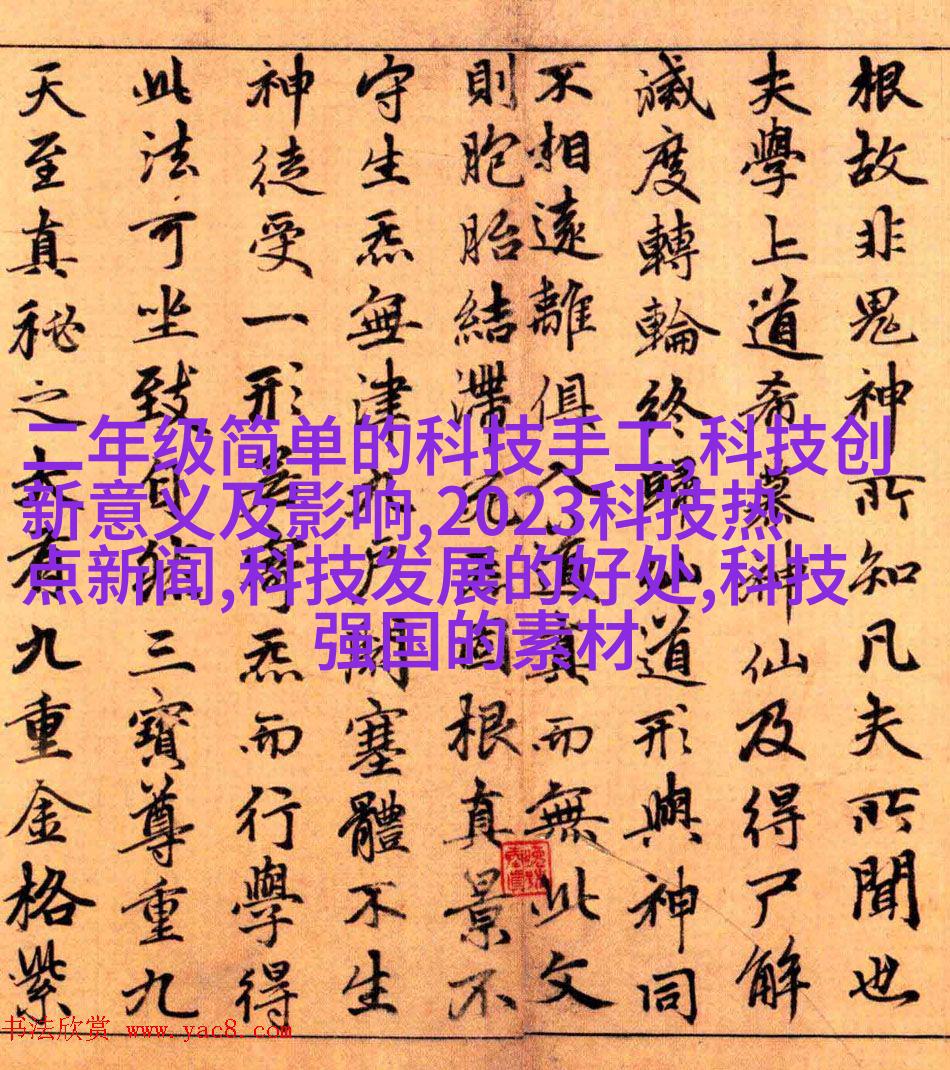 根故非鬼神所知凡夫所聞也
夫學上道希慕神仙及得尸解
滅度轉輪終歸仙道形與神同
不相遠離俱入道真而無此文
則胞胎結滯死固根真景不
守生炁無津九戶閉塞體不生
神徒受一形若寄炁而行學得
此法可坐致自然三寶尊重九
天至真秘之大有九重金格紫
二年级简单的科技手工,科技创
新意义及影响,2023科技热
点新闻,科技发展的好处,科技
强国的素材
书法欣赏 www.yac8.com